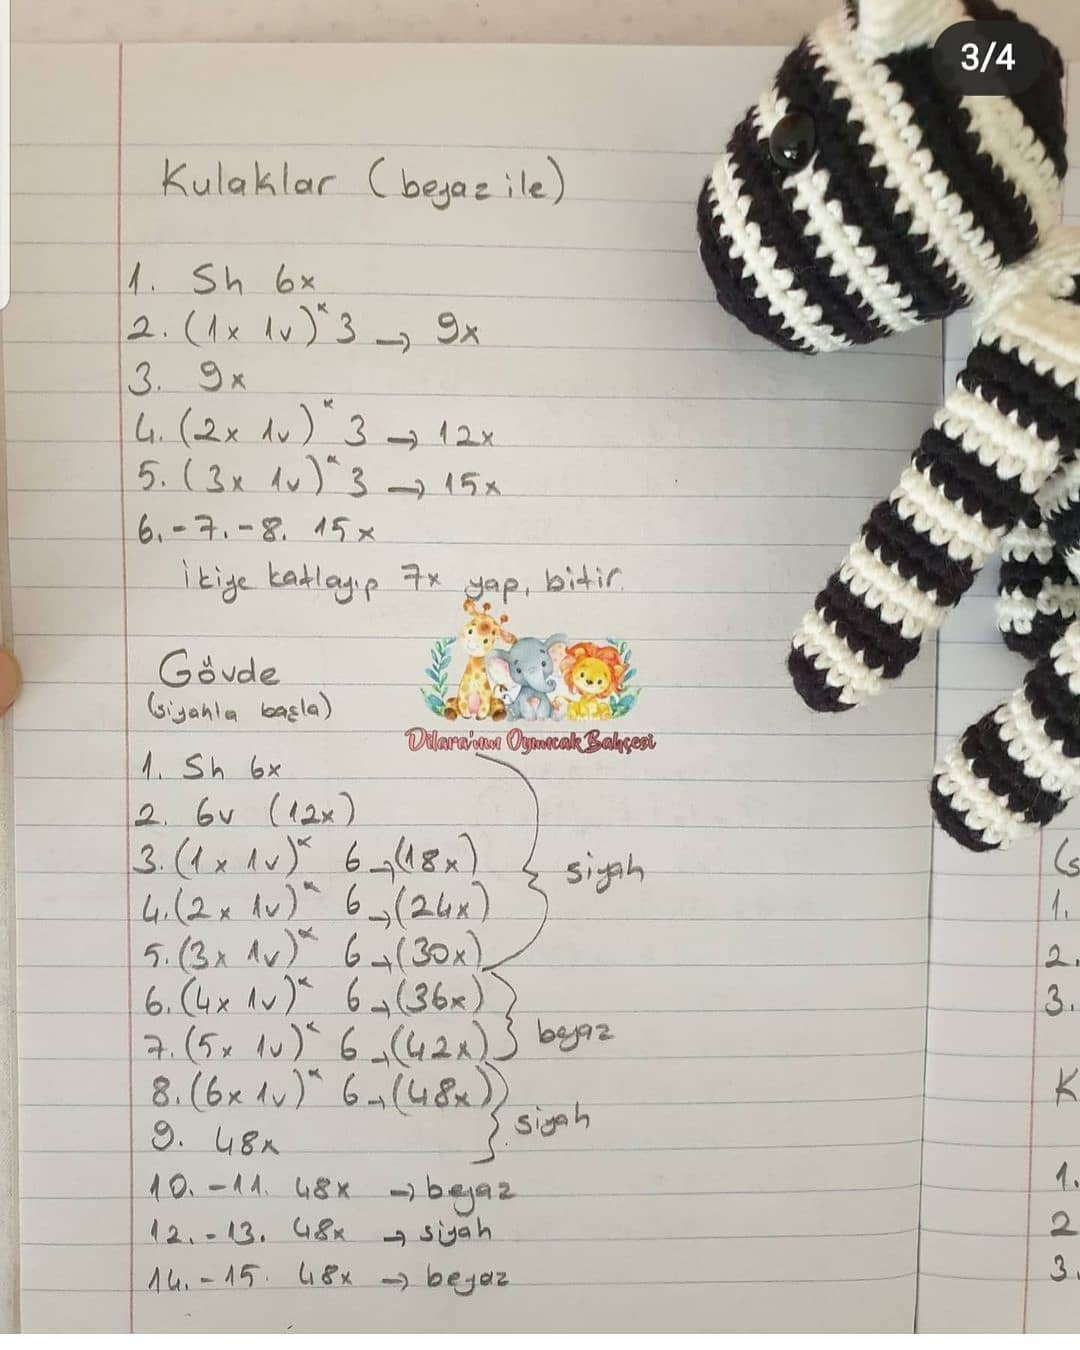 3/4
Kulaklar (beyaz ile)
1. Sh 6x
2. (1x 1v)* 3 → 9x
3. 9x
4. (2x 1v)* 3 → 12x
5. (3x 1v)* 3 → 15x
6.-7.-8. 15x
ikiye katlayıp 7x yap, bitir.
Gövde
(siyahla başla)
Dilara'nın Oyuncak Bahçesi
1. Sh 6x
2. 6v (12x)
3. (1x 1v)* 6 → (18x)
siyah
4. (2x 1v)* 6 → (24x)
5. (3x 1v)* 6 → (30x)
6. (4x 1v)* 6 → (36x)
7. (5x 1v)* 6 → (42x) beyaz
8. (6x 1v)* 6 → (48x)
siyah
9. 48x
10.-11. 48x → beyaz
12.-13. 48x → siyah
14.-15. 48x → beyaz
(s
1.
2.
3.
K
1.
2
3.